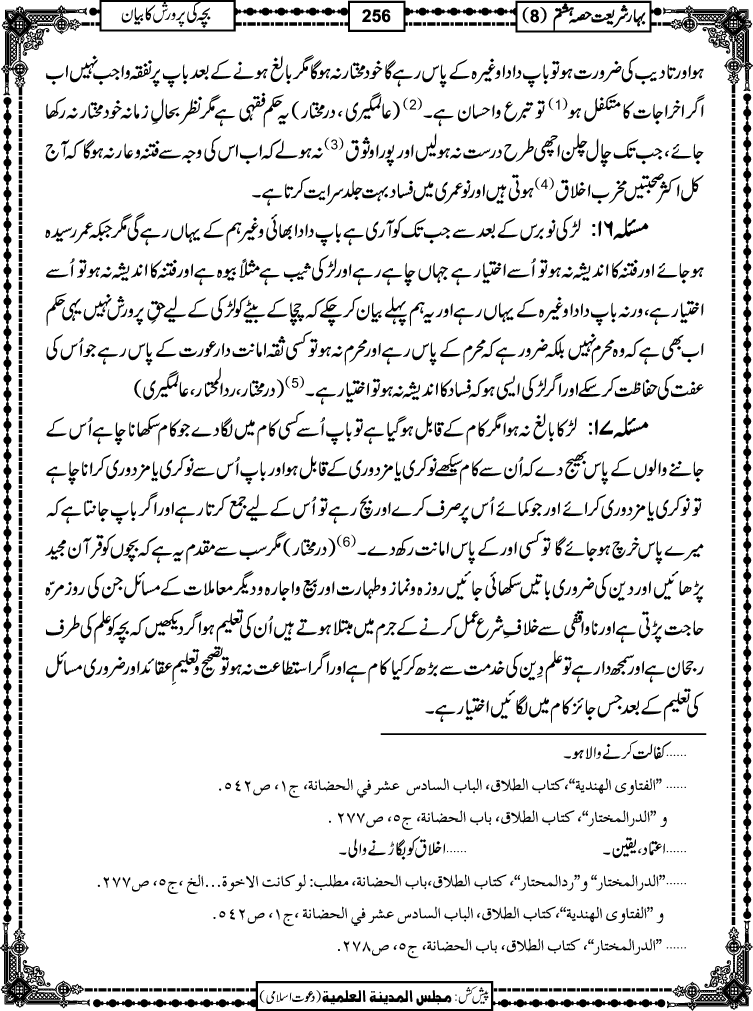 بہارِ شریعت حصہ ہشتم (8)
256
بچہ کی پرورش کا بیان
ہو اور تادیب کی ضرورت ہو تو باپ دادا وغیرہ کے پاس رہے گا خود مختار نہ ہوگا مگر بالغ ہونے کے بعد باپ پر نفقہ واجب نہیں اب
اگر اخراجات کا متکفل ہو(1) تو تبرع واحسان ہے۔(2) (عالمگیری، درمختار) یہ حکم فقہی ہے مگر نظر بحالِ زمانہ خود مختار نہ رکھا
جائے، جب تک چال چلن اچھی طرح درست نہ ہولیں اور پورا وثوق(3) نہ ہولے کہ اب اس کی وجہ سے فتنہ وعار نہ ہوگا کہ آج
کل اکثر صحبتیں مخرب اخلاق(4) ہوتی ہیں اور نوعمری میں فساد بہت جلد سرایت کرتا ہے۔
مسئلہ ۱۶: لڑکی نو برس کے بعد سے جب تک کوآری ہے باپ دادا بھائی وغیرہم کے یہاں رہے گی مگر جبکہ عمر رسیدہ
ہو جائے اور فتنہ کا اندیشہ نہ ہو تو اُسے اختیار ہے جہاں چاہے رہے اور لڑکی ثیب ہے مثلاً بیوہ ہے اور فتنہ کا اندیشہ نہ ہو تو اُسے
اختیار ہے، ورنہ باپ دادا وغیرہ کے یہاں رہے اور یہ ہم پہلے بیان کر چکے کہ چچا کے بیٹے کو لڑکی کے لیے حقِ پرورش نہیں یہی حکم
اب بھی ہے کہ وہ محرم نہیں بلکہ ضرور ہے کہ محرم کے پاس رہے اور محرم نہ ہو تو کسی ثقہ امانت دار عورت کے پاس رہے جو اُس کی
عفت کی حفاظت کرسکے اور اگر لڑکی ایسی ہو کہ فساد کا اندیشہ نہ ہو تو اختیار ہے۔(5) (درمختار، ردالمحتار، عالمگیری)
مسئلہ ۱۷: لڑکا بالغ نہ ہوا مگر کام کے قابل ہوگیا ہے تو باپ اُسے کسی کام میں لگا دے جو کام سکھانا چاہے اُس کے
جاننے والوں کے پاس بھیج دے کہ اُن سے کام سیکھے نوکری یا مزدوری کے قابل ہو اور باپ اُس سے نوکری یا مزدوری کرانا چاہے
تو نوکری یا مزدوری کرائے اور جو کمائے اُس پر صرف کرے اور بچ رہے تو اُس کے لیے جمع کرتا رہے اور اگر باپ جانتا ہے کہ
میرے پاس خرچ ہو جائے گا تو کسی اور کے پاس امانت رکھ دے۔(6) (درمختار) مگر سب سے مقدم یہ ہے کہ بچوں کو قرآن مجید
پڑھائیں اور دین کی ضروری باتیں سکھائی جائیں روزہ و نماز و طہارت اور بیع و اجارہ و دیگر معاملات کے مسائل جن کی روز مرّہ
حاجت پڑتی ہے اور ناواقفی سے خلافِ شرع عمل کرنے کے جرم میں مبتلا ہوتے ہیں اُن کی تعلیم ہو اگر دیکھیں کہ بچہ کو علم کی طرف
رجحان ہے اور سمجھ دار ہے تو علم دِین کی خدمت سے بڑھ کر کیا کام ہے اور اگر استطاعت نہ ہو تو تصحیح و تعلیمِ عقائد اور ضروری مسائل
کی تعلیم کے بعد جس جائز کام میں لگائیں اختیار ہے۔
......کفالت کرنے والا ہو۔
......"الفتاوی الھندیة"،کتاب الطلاق، الباب السادس عشر في الحضانة، ج١، ص٥٤٢.
و "الدرالمختار"، کتاب الطلاق، باب الحضانة، ج٥، ص٢٧٧.
......اعتماد، یقین۔ ......اخلاق کو بگاڑنے والی۔
......"الدرالمختار" و"ردالمحتار"، کتاب الطلاق،باب الحضانة، مطلب: لو کانت الاخوة...الخ ،ج٥، ص٢٧٧.
و "الفتاوی الھندیة"،کتاب الطلاق، الباب السادس عشر في الحضانة ،ج١، ص٥٤٢.
......"الدرالمختار"، کتاب الطلاق، باب الحضانة، ج٥، ص٢٧٨.
پیش کش: مجلس المدینة العلمیة (دعوت اسلامی)